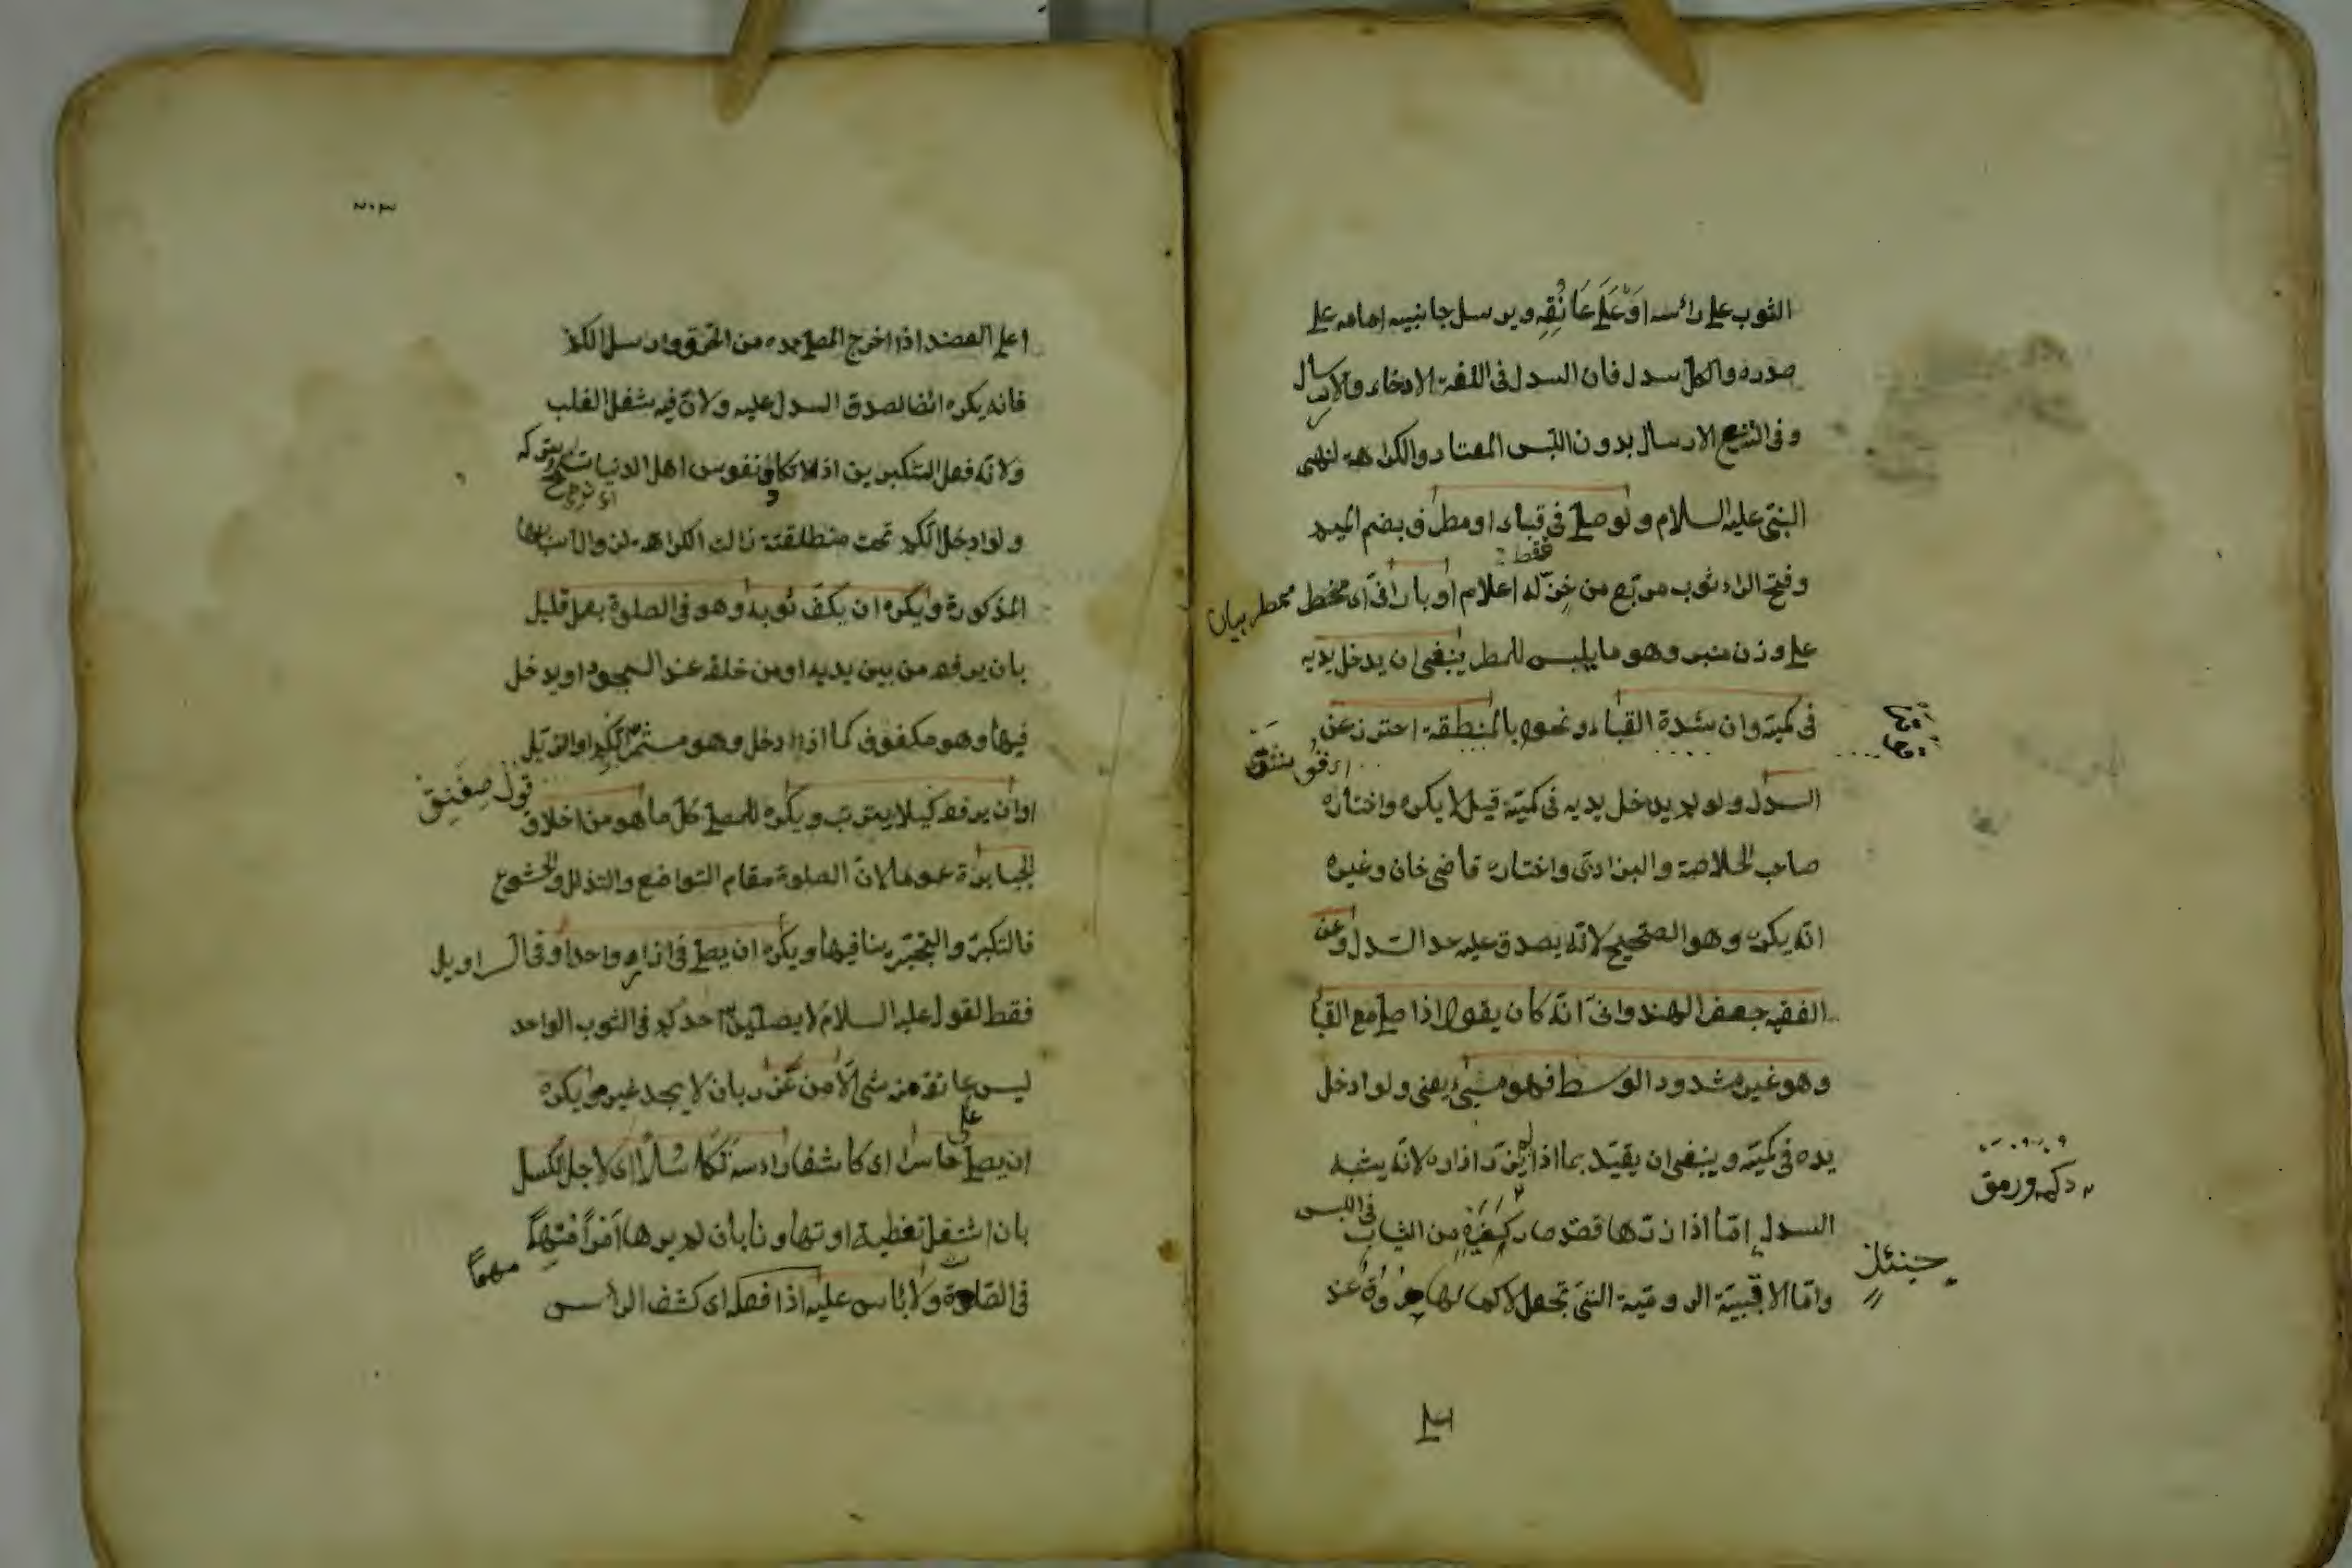 الثوب على رأسه او على عاتقه ويرسل جانبيه امامه على
صدره والكل سدل فان السدل فى اللغة الارخاء والارسال
وفى الشرع الارسال بدون اللبس المعتاد والكراهة لنهى
النبى عليه السلام ولو صلى فى قباء او مطرف بضم الميم
فقط
وفتح الراء ثوب مربع من خز له اعلام او بارانى اى ممطر
على وزن منبر وهو ما يلبس للمطر ينبغى ان يدخل يديه
فى كميه وان شدة القباء ونحوه بالمنطقة احترز عن
السدل ولو لم يدخل يديه فى كميه قيل لا يكره واختاره
صاحب الخلاصة والبزازى واختاره قاضى خان وغيره
انه يكره وهو الصحيح لانه يصدق عليه حد السدل وعن
الفقيه جعفر الهندوانى انه كان يقول اذا صلى مع القباء
وهو غير مشدود الوسط فهو مسىء يعنى ولو ادخل
يده فى كميه وينبغى ان يقيد بما اذا لم يزر ازاره لانه يشبه
السدل اما اذا زرها فقد صار كغيره من الثياب فى اللبس
حينئذ
واما الاقبية الرومية التى تجعل لاكمامها خروق عند
على
٢٠٣
اعلى العضد اذا اخرج المصلى يده من الخرق وارسل الكم
فانه يكره ايضا لصدق السدل عليه ولان فيه شغل القلب
ولانه فعل المتكبرين اذ لا تكاد نفوس اهل الدنيا تتركه
ولو ادخل الكم تحت منطقته زالت الكراهة لزوال اسبابها
المذكورة ويكره ان يكف ثوبه وهو فى الصلوة بعمل قليل
بان يرفعه من بين يديه او من خلفه عند السجود او يدخل
فيها وهو مكفوف كما اذا دخل وهو مشمر الكم او الذيل
او ان يرفعه كيلا يترب ويكره للمصلى كل ما هو من اخلاق
الجبابرة عموما لان الصلوة مقام التواضع والتذلل والخشوع
فالتكبر والتجبر ينافيها ويكره ان يصلى فى ازار واحد او فى السراويل
فقط لقوله عليه السلام لا يصلين احدكم فى الثوب الواحد
ليس على عاتقه من شئ الا من عذر بان لا يجد غيره ويكره
ان يصلى حاسرا اى كاشفا رأسه تكاسلا اى لاجل الكسل
بان استثقل تغطيته او تهاونا بان لم يرها امرا مهما
مهما
فى الصلوة ولا بأس عليه اذا فعله اى كشف الرأس